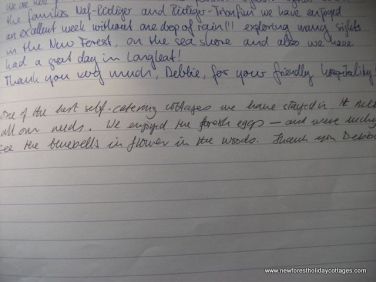 we are
the families Naf-Rediger and Rediger- we have enjoyed
an excellent week without one drop of rain!!! exploring many sights
in the New Forest, on the sea shore and also we have
had a great day in Longleat!
Thank you very much, Debbie, for your friendly hospitality!
one of the best self-catering cottages we have stayed in. It met
all our needs. We enjoyed the fresh eggs – and were lucky
see the bluebells in flower in the woods. Thank you Debbie
www.newforestholidaycottages.com